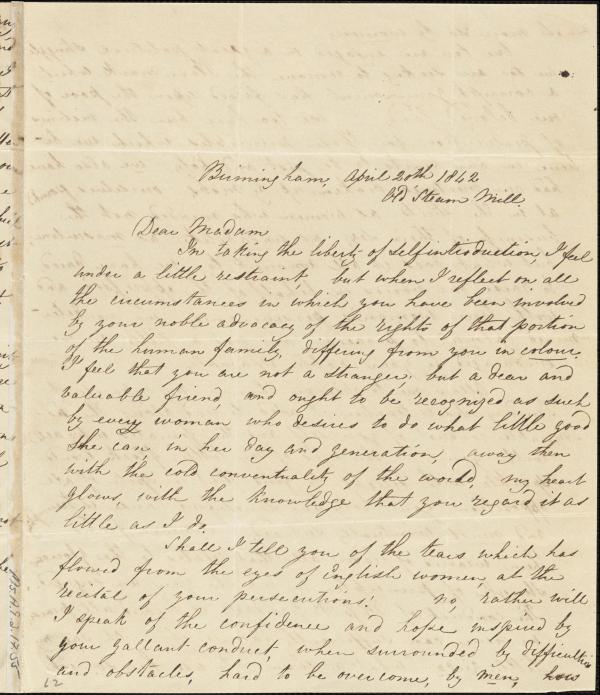 Birmingham, April 20th 1842
Old Steam Mill
Dear Madam
In taking the liberty of self introduction, I feel
under a little restraint, but when I reflect on all
the circumstances in which you have been involved
by your noble advocacy of the rights of that portion
of the human family, differing from you in colour,
I feel that you are not a stranger, but a dear and
valuable friend, and ought to be recognized as such
by every woman who desires to do what little good
she can, in her day and generation, away then
with the cold conventuality of the world, my heart
glows, with the knowledge that you regard it as
little as I do.
Shall I tell you of the tears which has
flowed from the eyes of English women, at the
recital of your persecutions! no, rather will
I speak of the confidence and hope inspired by
your gallant conduct, when surrounded by difficulties
and obstacles, hard to be overcome, by men, how
62